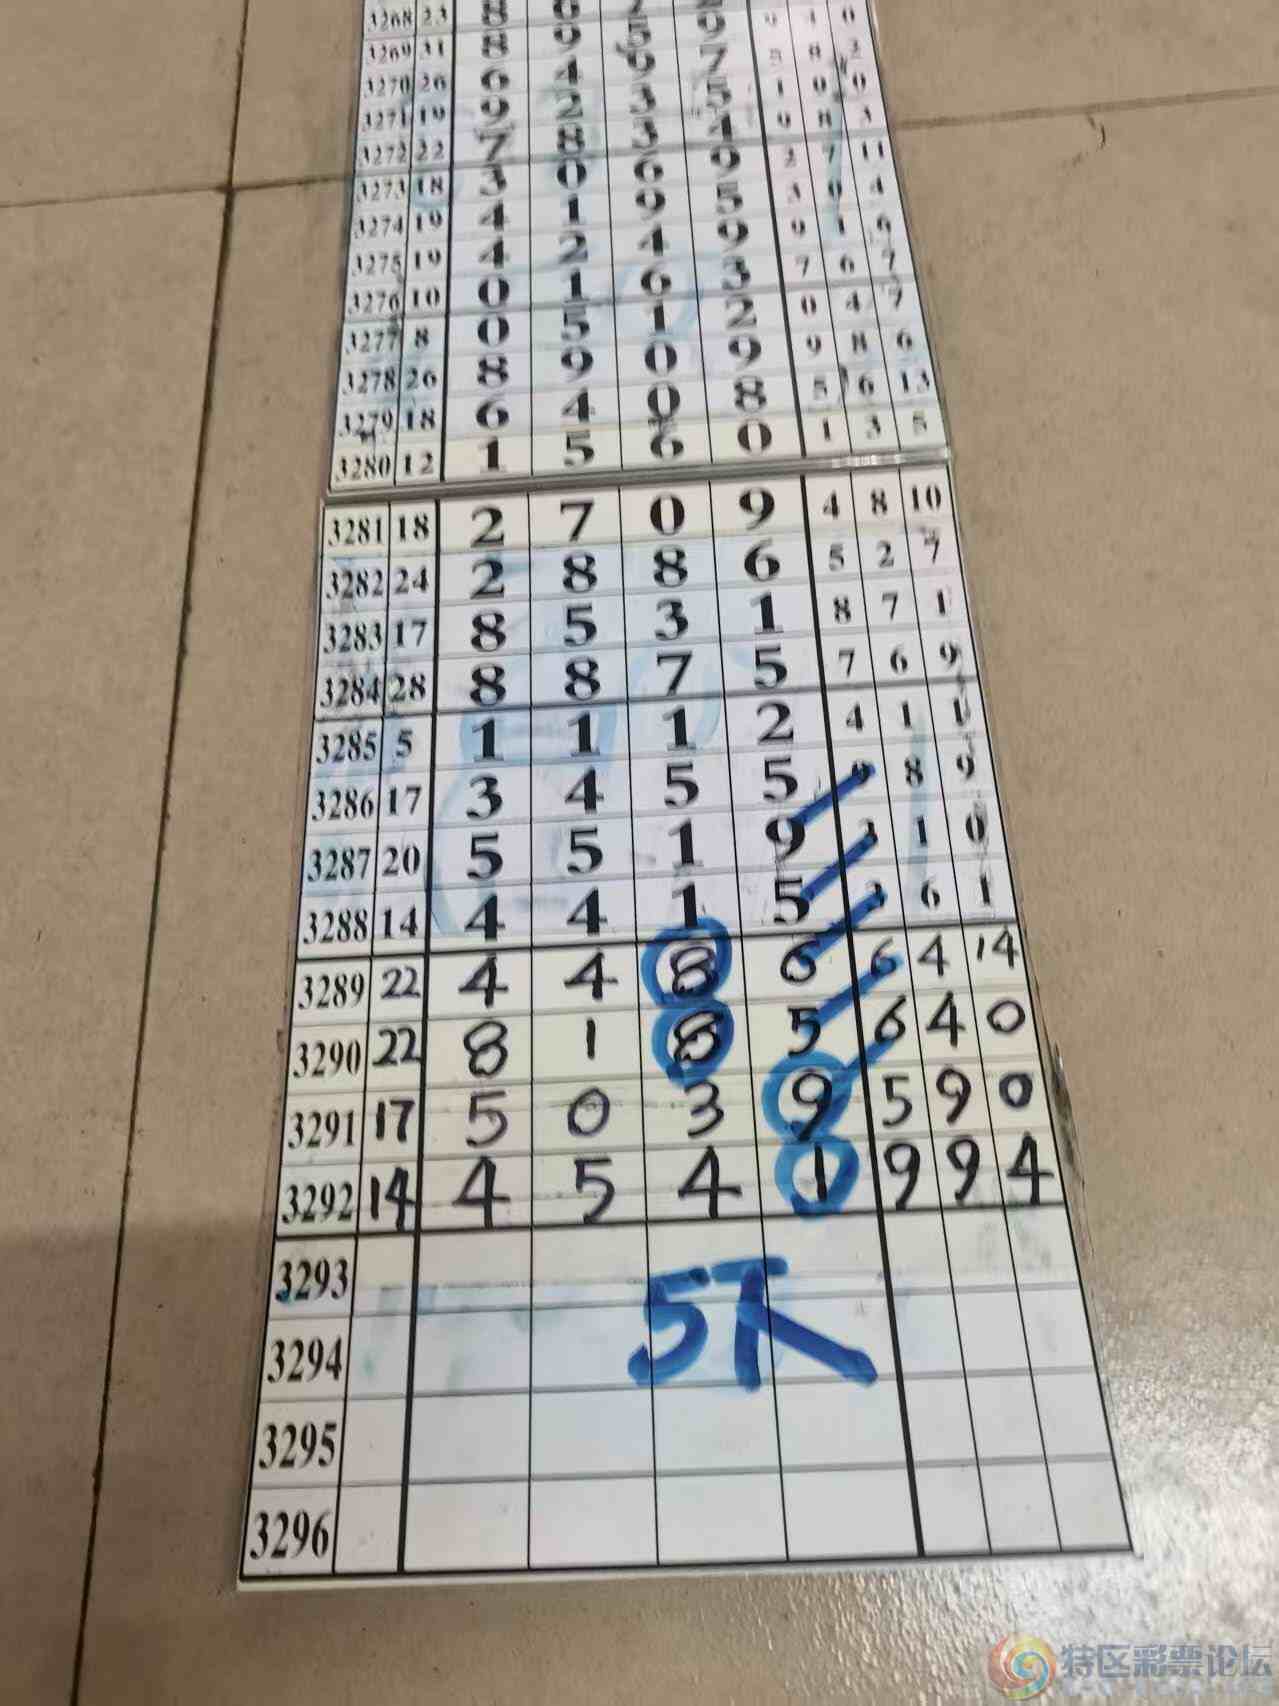 3268 23 8
3269 31 8 9 6 7 8 8 2
3270 26 6 4 9 7 1 0 0
3271 19 9 2 3 5 9 8 3
3272 22 7 8 3 4 2 7 11
3273 18 3 0 6 9 3 9 4
3274 19 4 1 9 5 9 1 6
3275 19 4 2 4 9 7 6 7
3276 10 0 1 6 3 0 4 7
3277 8 0 5 1 2 9 8 6
3278 26 8 9 0 9 5 6 13
3279 18 6 4 0 8 1 3 5
3280 12 1 5 6 0
3281 18 2 7 0 9 4 8 10
3282 24 2 8 8 6 5 2 7
3283 17 8 5 3 1 8 7 1
3284 28 8 8 7 5 7 6 9
3285 5 1 1 1 2 4 1 1
3286 17 3 4 5 5 9 8 9
3287 20 5 5 1 9 3 1 0
3288 14 4 4 1 5 3 6 1
3289 22 4 4 8 6 6 4 14
3290 22 8 1 8 5 6 4 0
3291 17 5 0 3 9 5 9 0
3292 14 4 5 4 1 9 9 4
3293
5不
3294
3295
3296
特区彩票论坛